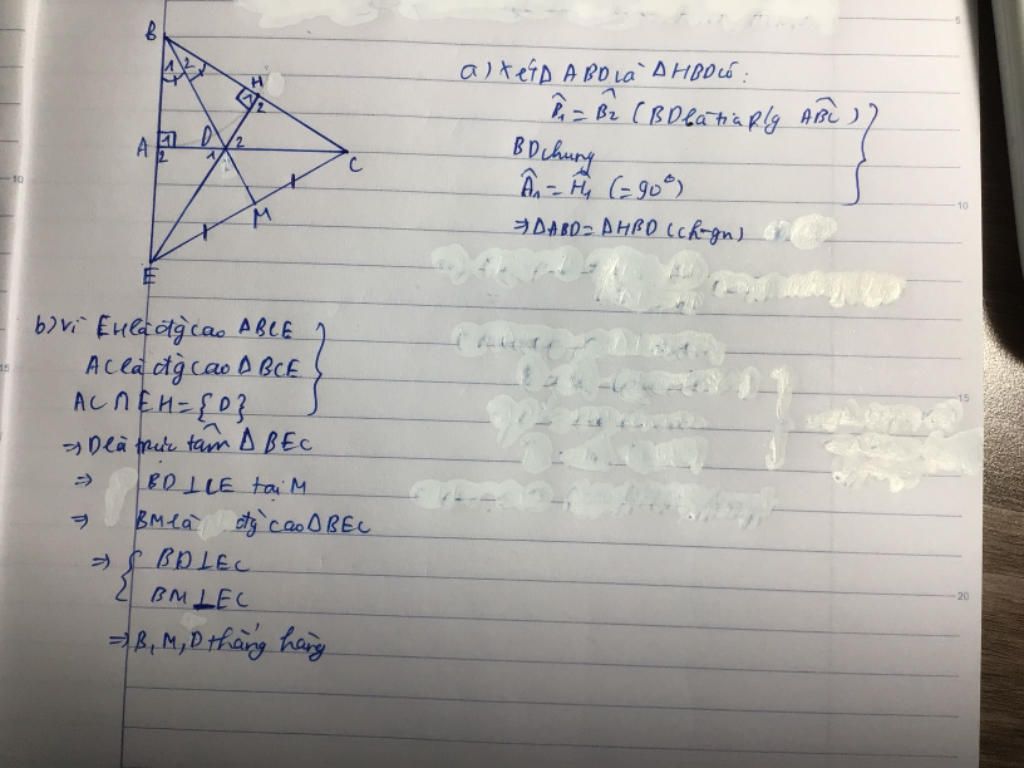 B
1 2
H
1 2
A
1
2
D
1 2
C
M
E
a) Xét Δ ABD và Δ HBD có:
B̂₁ = B̂₂ (BD là tia p/g ABC)
BD chung
Â₁ = Ĥ₁ (= 90°)
⇒ Δ ABD = Δ HBD (ch-gn)
b) Vì EH là đg cao ΔBCE
AC là đg cao Δ BCE
AC ∩ EH = {D}
⇒ D là trực tâm Δ BEC
⇒ BD ⊥ CE tại M
⇒ BM là đg cao Δ BEC
⇒ { BD ⊥ EC
BM ⊥ EC
⇒ B, M, D thẳng hàng
5
10
15
20
10
15